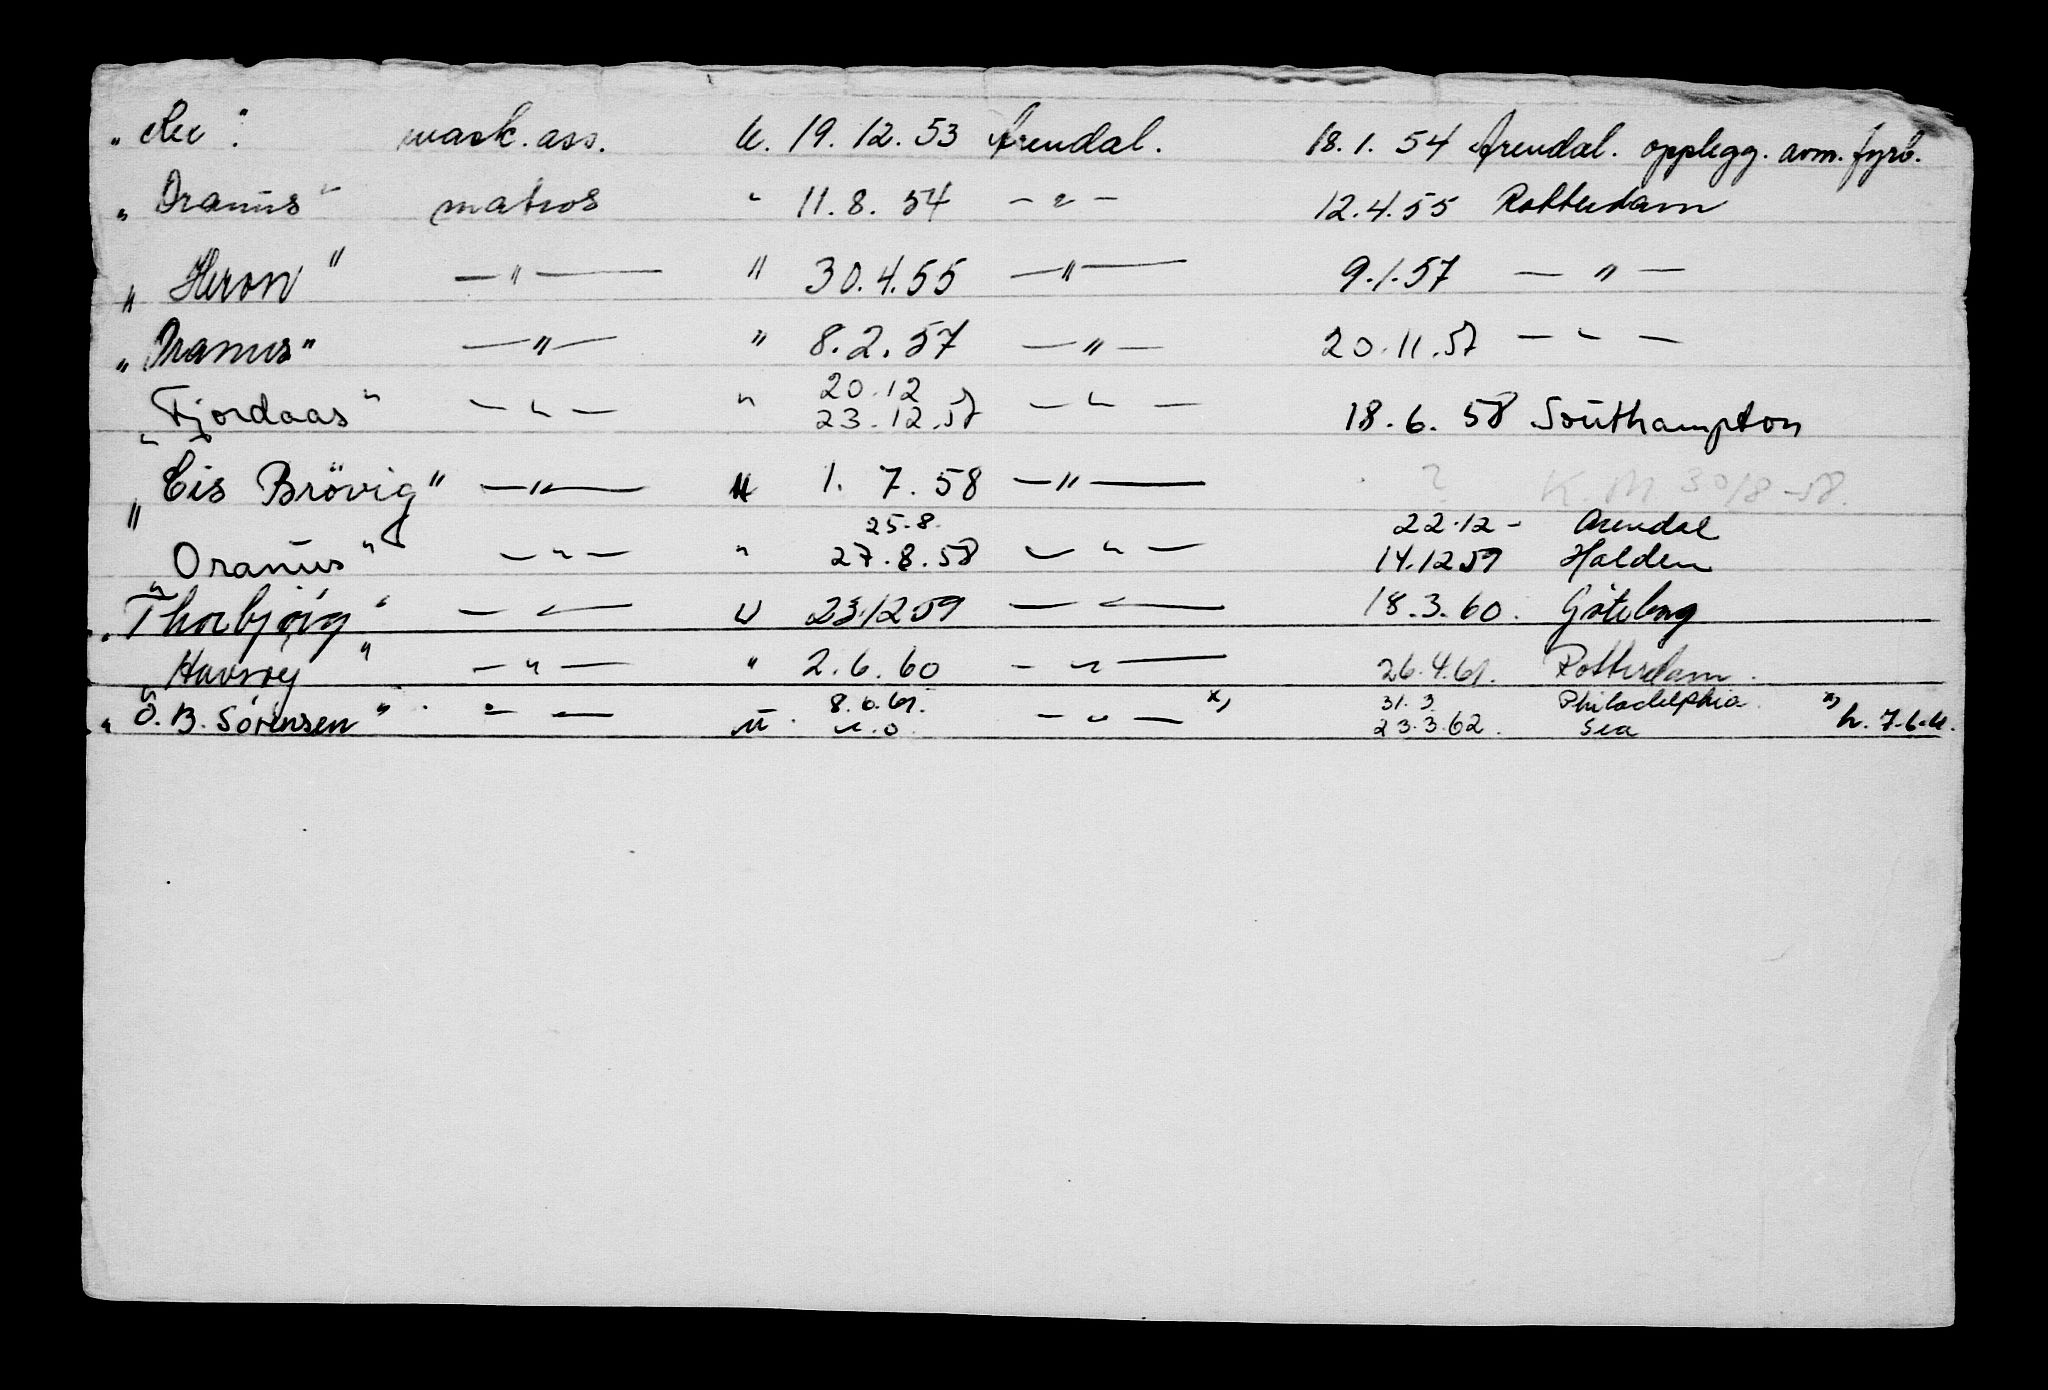 mask. ass. u. 19. 12. 53 Arendal. 18. 1. 54 Arendal. opplegg. avm. fyrb.
„ Oranus " matros " 11. 8. 54 — " — 12. 4. 55 Rotterdam
„ Heron " — " — " 30. 4. 55 — " — 9. 1. 57 — " —
„ Oranus " — " — " 8. 2. 57 — " — 20. 11. 57 — " —
20. 12
„ Fjordaas " — " — " 23. 12. 57 — " — 18. 6. 58 Southampton
„ Cis Brövig " — " — u 1. 7. 58 — " — ? K. M 30/8 -58.
25. 8. 22. 12 - Arendal
„ Oranus " — " — " 27. 8. 58 — " — 14. 12 59 Halden
„ Thorbjørg " — " — u 23. 12 59 — " — 18. 3. 60. Göteborg
„ Havsøy " — " — " 2. 6. 60 — " — 26. 4. 61. Rotterdam.
8. 6. 61. x) 31. 3. Philadelphia. x)
„ O. B. Sörensen " — " — u. o. — " — 23. 3. 62. Sea